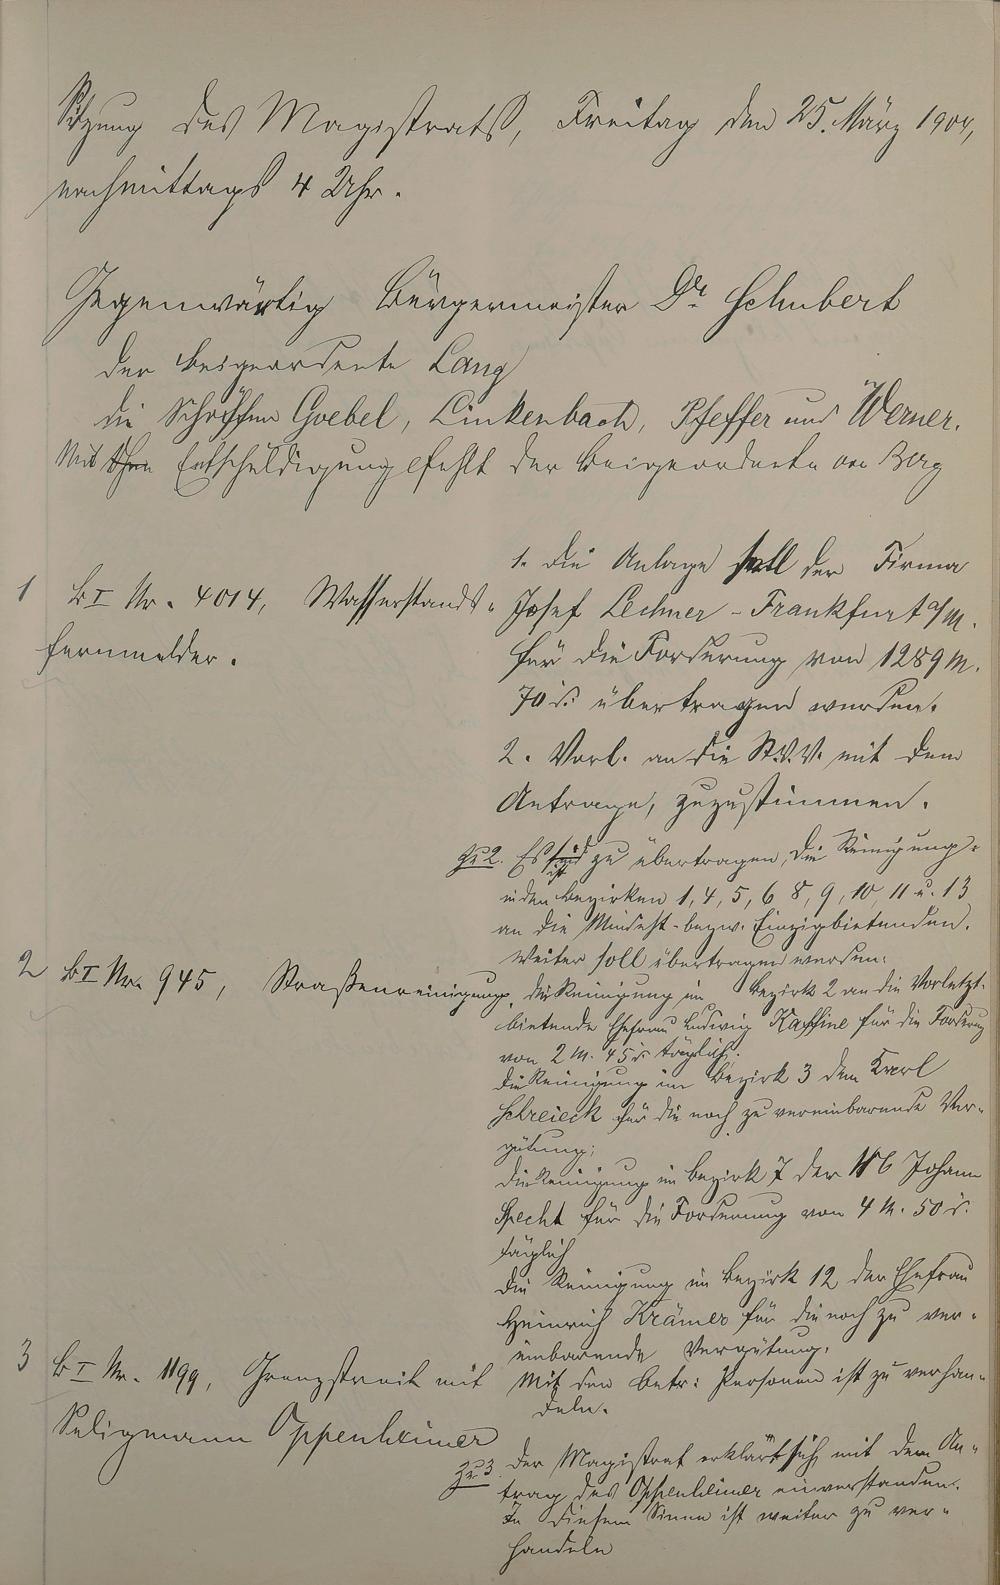 Sitzung des Magistrats, Freitag den 25. März 1904,
nachmittags 4 Uhr.
Gegenwärtig Bürgermeister Dr. Schubert
der Beigeordnete Lang
die Schöffen Goebel, Linkenbach, Pfeffer und Werner.
Mit Entschuldigung fehlt der Beigeordnete von Berg
1 B I Nr. 4014, Wasserstands-
fernmelder.
1. Die Anlage soll der Firma
Josef Lechner - Frankfurt a/M.
für die Forderung von 1289 M.
70 d. übertragen werden.
2. Vorl. an die St.V.V. mit dem
Antrage, zuzustimmen.
2 B I Nr. 945, Straßenreinigung.
zu 2. Es ist zu übertragen, die Reinigung
in den Bezirken 1, 4, 5, 6, 8, 9, 10, 11 u. 13
an die Mindest- bezw. Einzigbietenden.
Weiter soll übertragen werden:
die Reinigung im Bezirk 2 an die Vorletzt-
bietende Ehefrau Ludwig für die Forderung
von 2 M. 45 d. täglich;
die Reinigung im Bezirk 3 dem Karl
Schreieck für die noch zu vereinbarende Ver-
gütung;
die Reinigung im Bezirk 7 der Johann
Specht für die Forderung von 4 M. 50 d.
täglich
die Reinigung im Bezirk 12 der Ehefrau
Heinrich Krämer für die noch zu ver-
einbarende Vergütung.
Mit den betr. Personen ist zu verhan-
deln.
3 B I Nr. 1199, Grenzstreit mit
Seligmann Oppenheimer
zu 3. Der Magistrat erklärt sich mit dem An-
trag des Oppenheimer einverstanden.
In diesem Sinne ist weiter zu ver-
handeln